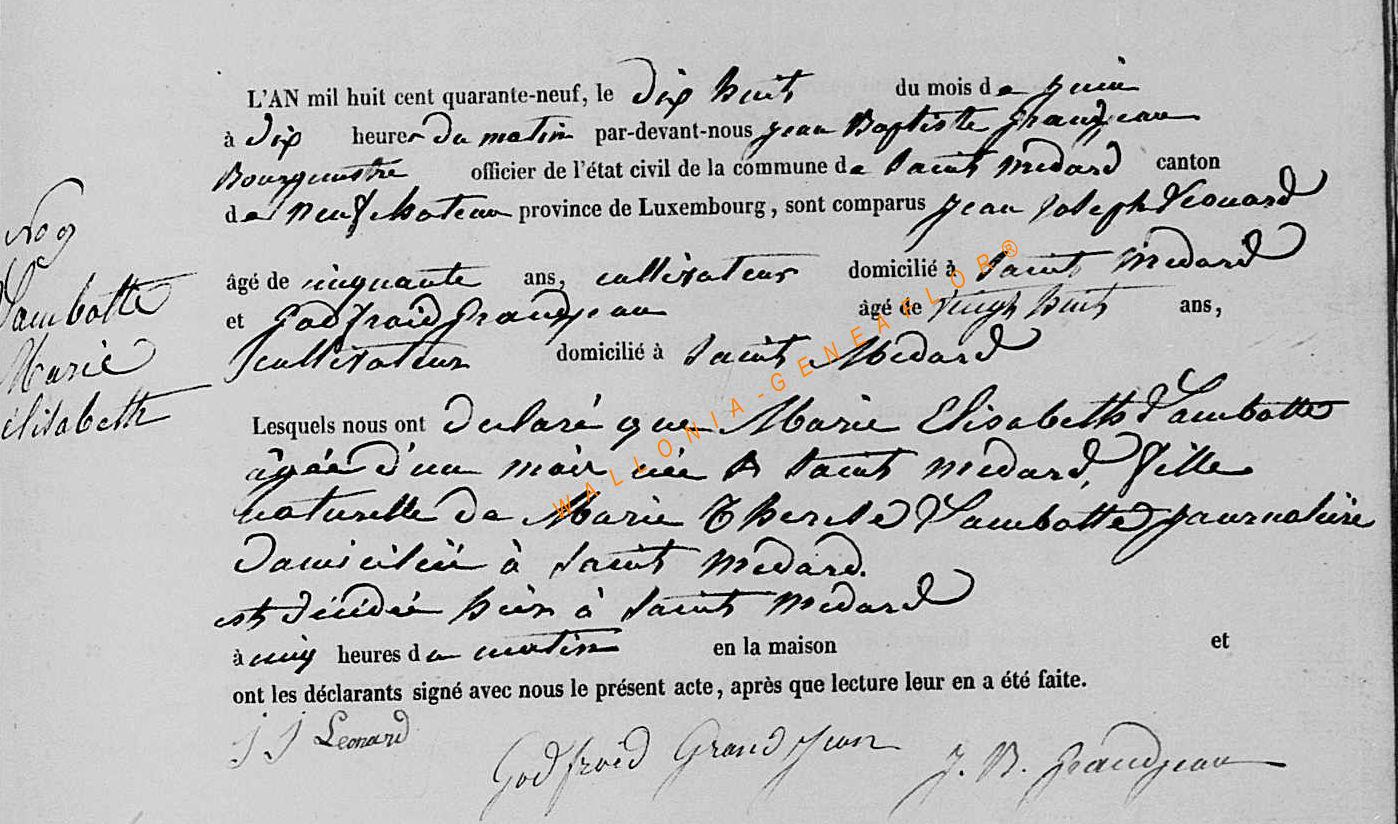 L'AN mil huit cent quarante-neuf, le dix huit du mois de juin
à dix heures du matin par-devant-nous jean Baptiste grandjean
Bourgmestre officier de l'état civil de la commune de Saint Médard canton
de Neufchateau province de Luxembourg, sont comparus jean joseph Léonard
âgé de cinquante ans, cultivateur domicilié à Saint Médard
et Godfroid Grandjean âgé de vingt huit ans,
cultivateur domicilié à Saint Médard
Lesquels nous ont déclaré que Marie Elisabeth Lambotte
âgée d'un mois née à Saint Médard, fille
naturelle de Marie Therese Lambotte journalière
domiciliée à Saint Médard.
est décédée hier à Saint Médard
à cinq heures du matin en la maison et
ont les déclarants signé avec nous le présent acte, après que lecture leur en a été faite.
J J Leonard
Godfroid Grandjean
J. B. Grandjean
No 9
Lambotte
Marie
élisabeth
WALLONIA-GENEAFLOR®